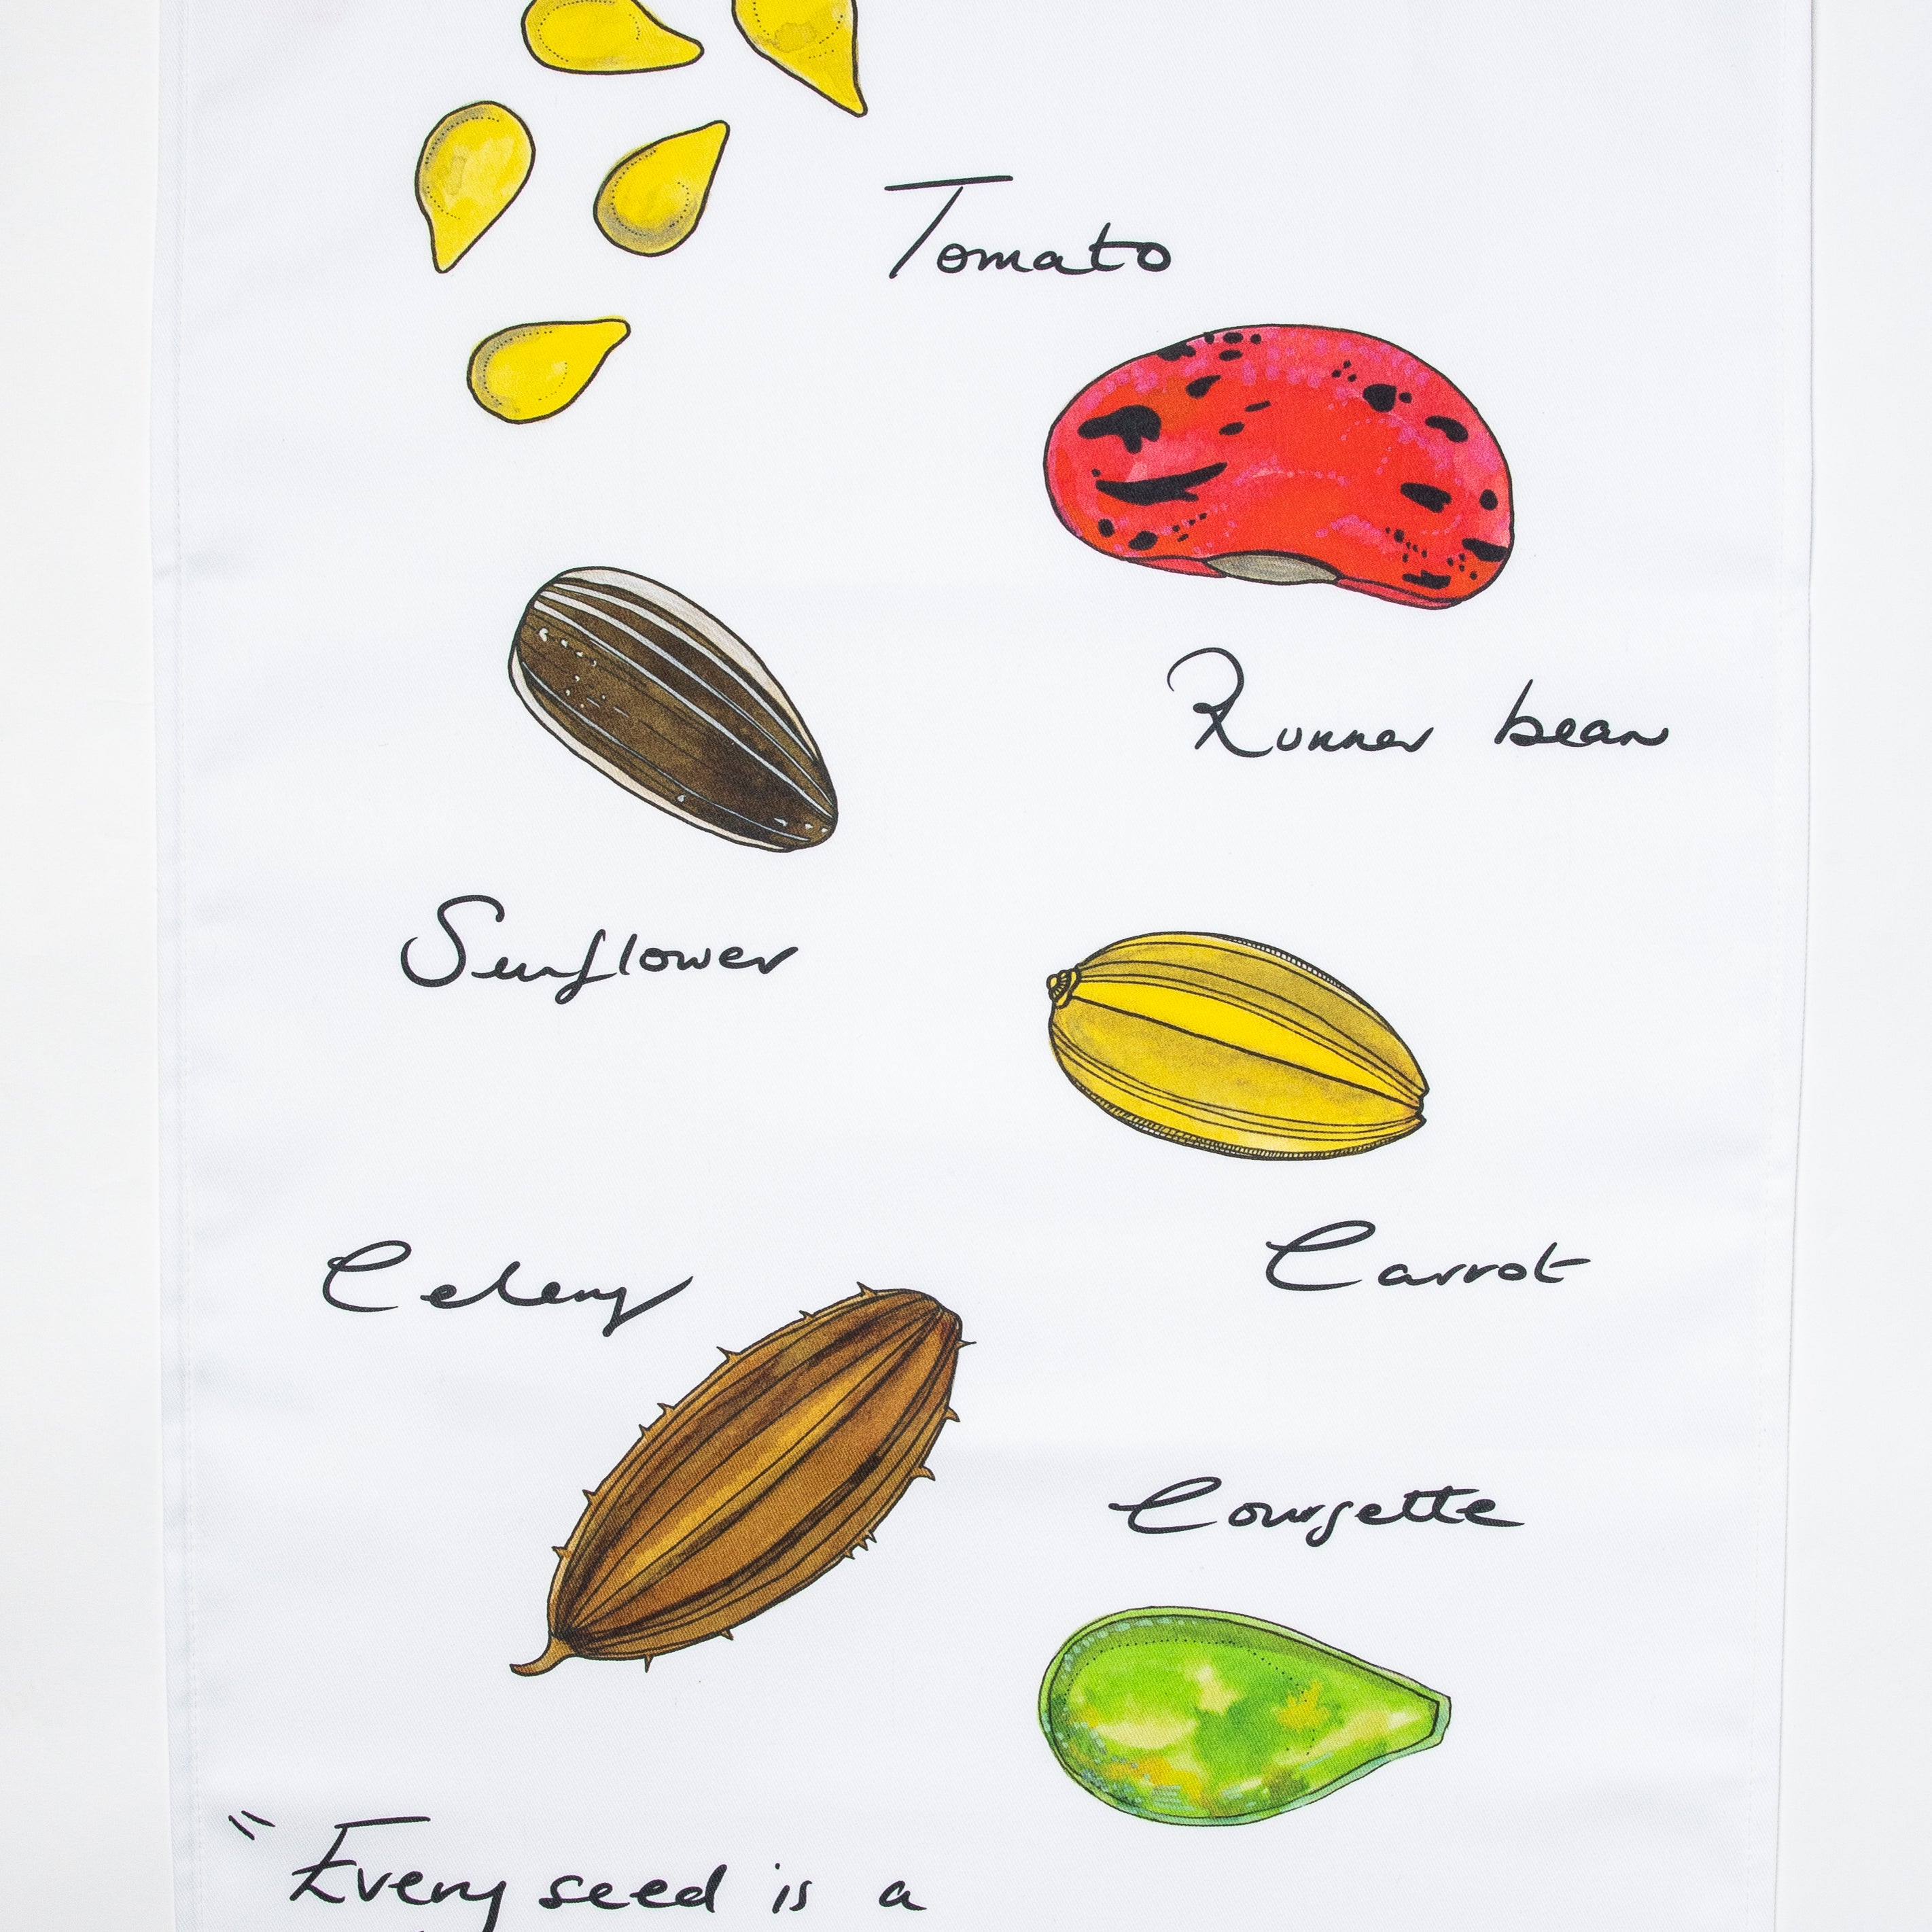 Tomato
Runner bean
Sunflower
Carrot
Celery
Courgette
"Every seed is a